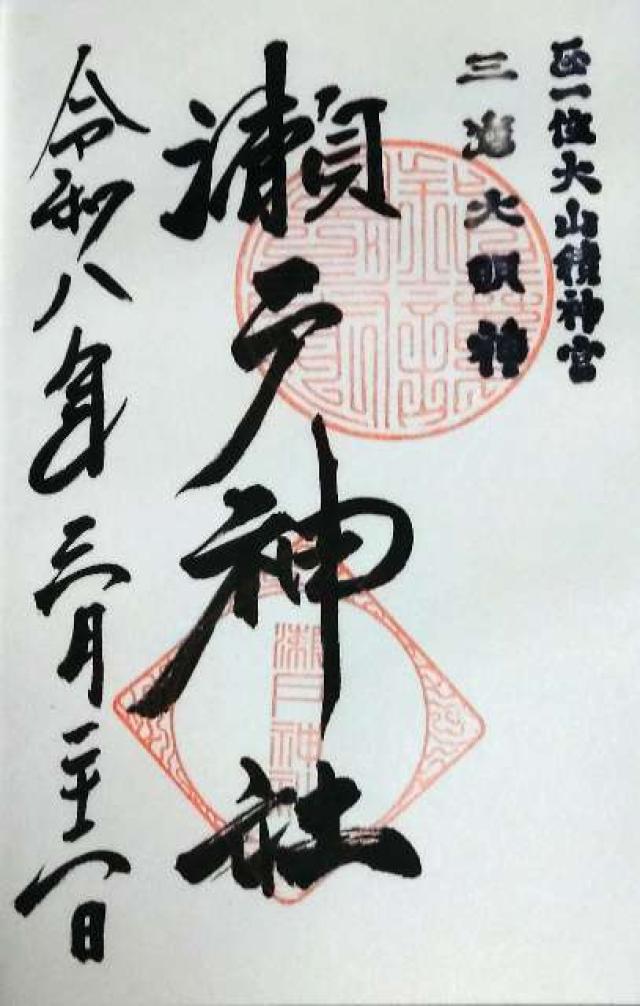 正一位大山積神宮
三嶋大明神
瀬戸神社
令和八年三月二十八日